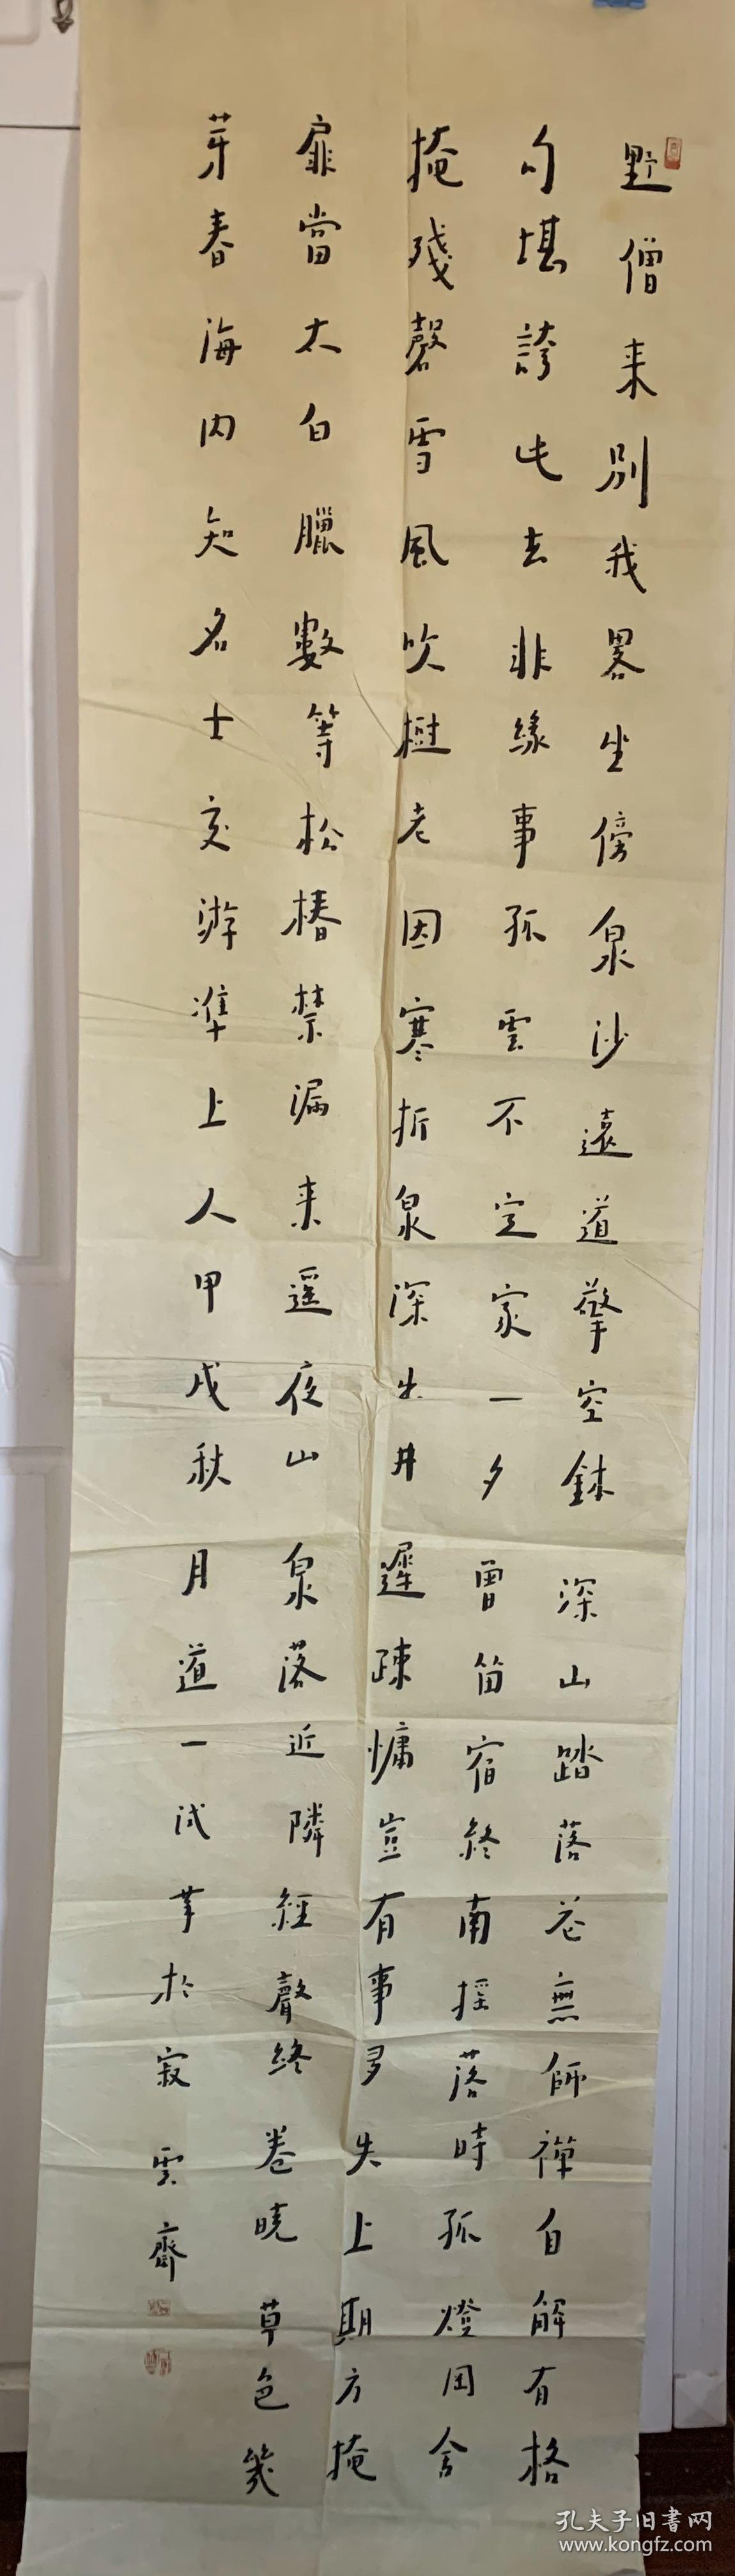 野僧来別我畧坐傍泉沙遠道擎空鉢深山踏落花無師禪自解有格
句堪誇此去非緣事孤雲不定家一夕曾留宿終南摇落時孤燈岡舍
掩殘磬雪風吹樹老因寒折泉深出井遲疎慵豈有事多失上期方掩
扉當太白臘數等松椿禁漏来遥夜山泉落近隣經聲終卷曉草色幾
芽春海内知名士交游準上人甲戌秋月道一試筆於寂雲齋
孔夫子旧書网
www.kongfz.com